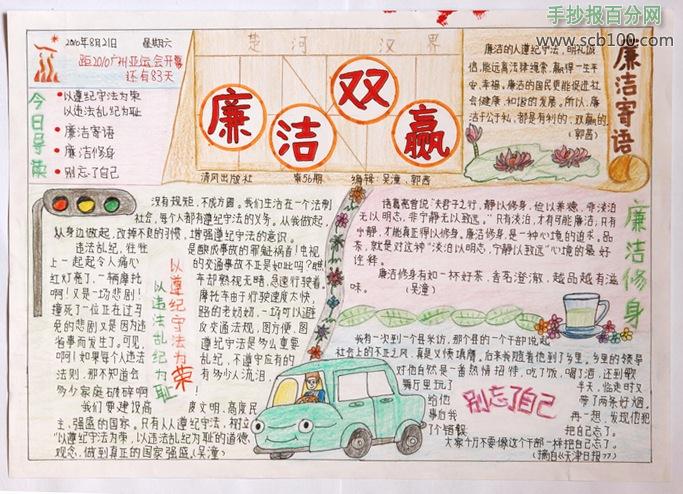 手抄报百分网
www.scb100.com
2010年8月21日 星期六
距2010广州亚运会开幕
还有83天
今日导航
以遵纪守法为荣
以违法乱纪为耻
廉洁寄语
廉洁修身
别忘了自己
楚河 汉界
廉洁双赢
清风出版社 第56期 编辑:吴潼、郭茜
廉洁的人遵纪守法,明礼诚
信,能远离法律绳索,赢得一生平
安、幸福,廉洁的国民更能促进社
会健康、和谐的发展。所以,廉
洁于公于私,都是有利的、双赢的。
(郭茜)
廉洁寄语
没有规矩,不成方圆。我们生活在一个法制
社会,每个人都有遵纪守法的义务。从我做起,
从身边做起,改掉不良的习惯,增强遵纪守法的意识。
违法乱纪,往往
上一起起令人痛心
红灯亮了,一辆摩托
啊!又是一场悲剧!
撞死了一位正在过马
免的悲剧又是因为违
省事而发生了。可见,
啊!如果每个人违法
法则,那不知道会
多少家庭破碎啊!
以遵纪守法为荣
以违法乱纪为耻
是酿成事故的罪魁祸首!电视
的交通事故不正是如此吗?瞧
车却熟视无睹,急速行驶着
摩托车由于行驶速度太快,
路的老奶奶,一场可以避
反交通法规,图方便,图
遵纪守法是多么重要
乱纪,不遵守应有的
有多少人流泪,
我们要建设高度文明、高度民
主、强盛的国家。只有人人遵纪守法,树立
“以遵纪守法为荣,以违法乱纪为耻的道德
观念,做到真正的国家强盛(吴潼)
诸葛亮曾说“夫君子之行,静以修身,俭以养德,非淡泊
无以明志,非宁静无以致远。”只有淡泊,才有可能廉洁,只有
宁静,才能真正得以修身。廉洁修身,是一种心境的追求。品
茶,就是对这种“淡泊以明志,宁静以致远”心境的最好
诠释。
廉洁修身有如一杯好茶,香茗澄澈,越品越有滋
味。(吴潼)
廉洁修身
我有一次到一个县采访,那个县的一个干部说起
社会上的不正之风,真是义愤填膺。后来我随着他到了乡里。乡里的领导
对他自然是一番热情招待,吃了饭,喝了酒,还到歌
舞厅里玩了半天,临走时又
给他带了两条好烟。
事后我再一想,发现他犯
了个错误把自己忘了。
大家千万不要像这个干部一样把自己忘了。
(摘自《天津日报》)
别忘了自己